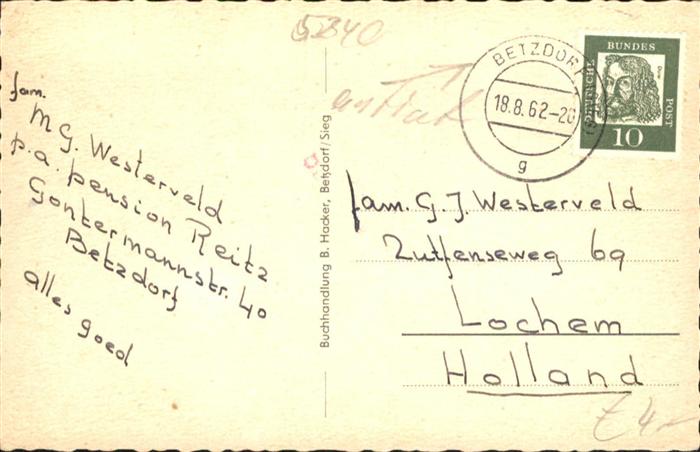 5240
fam.
M G. Westerveld
p.a. pension Reitz
Gontermannstr. 40
Betzdorf
alles goed
Buchhandlung B. Hacker, Betzdorf/Sieg
antiak
BETZDORF
18.8.62-20
g
DEUTSCHE
BUNDES
POST
10
fam. G. J. Westerveld
Zutfenseweg 69
Lochem
Holland